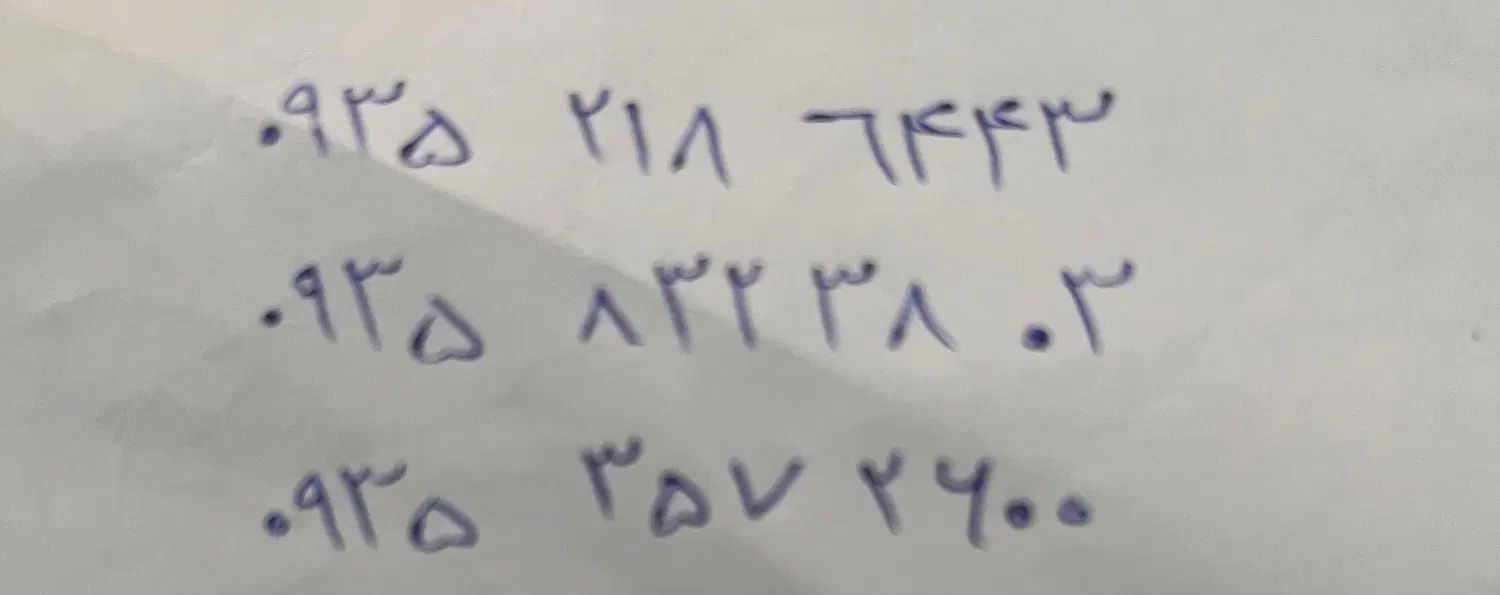 ۰۹۳۵ ۲۱۸ ۶۴۴۳
۰۹۳۵ ۸۳۲ ۳۸ ۰۳
۰۹۳۵ ۳۵۷ ۲۶۰۰